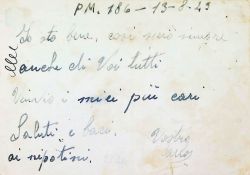 PM. 186 - 13-8-43
Io sto bene, così spero
anche di Voi tutti
Invio i miei più cari
Saluti e baci.
ai nipotini.
Vostro